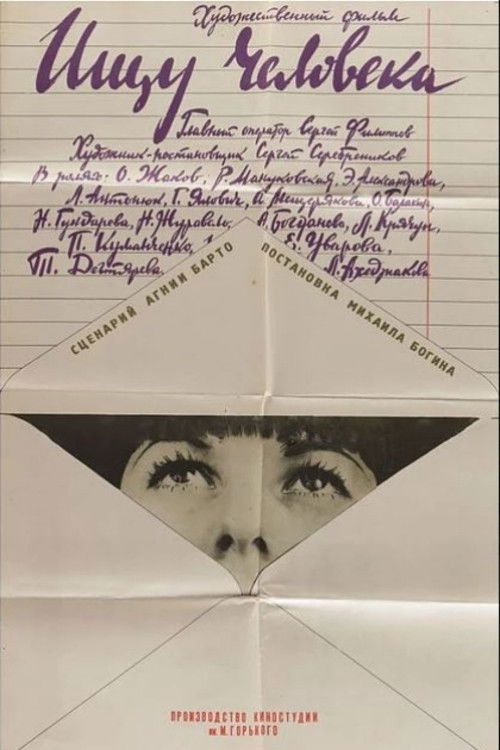 Художественный фильм
Ищу человека
Главный оператор Сергей Филиппов
Художник-постановщик Сергей Серебреников
В ролях: О. Жаков, Р. Мануковская, Э. Александрова,
Л. Антонюк, Г. Ялович, А. Мещерякова, О. Балакин,
Н. Гундарева, Н. Журавель, А. Богданова, Л. Крячун,
П. Кузьмиченко, Е. Уварова,
Т. Дегтярева, Л. Ахеджакова
СЦЕНАРИЙ АГНИИ БАРТО
ПОСТАНОВКА МИХАИЛА БОГИНА
ПРОИЗВОДСТВО КИНОСТУДИИ
им. М. ГОРЬКОГО